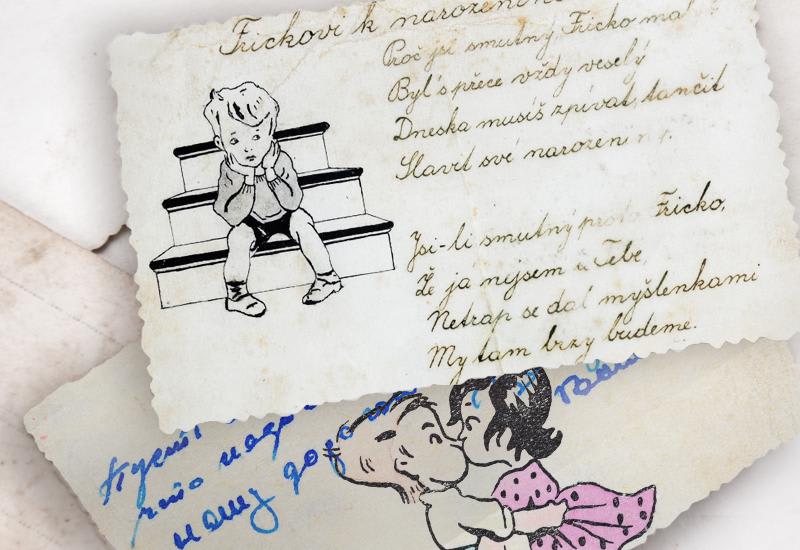 Frickovi k narozeninám
Proč jsi smutný Fricko mal
Byl's přece vždy veselý
Dneska musíš zpívat, tančit
Slavit své narozeniny.
Jsi-li smutný proto Fricko,
Že ja nejsem u Tebe,
Netrap se dal myšlenkami
My tam brzy budeme.
нашу